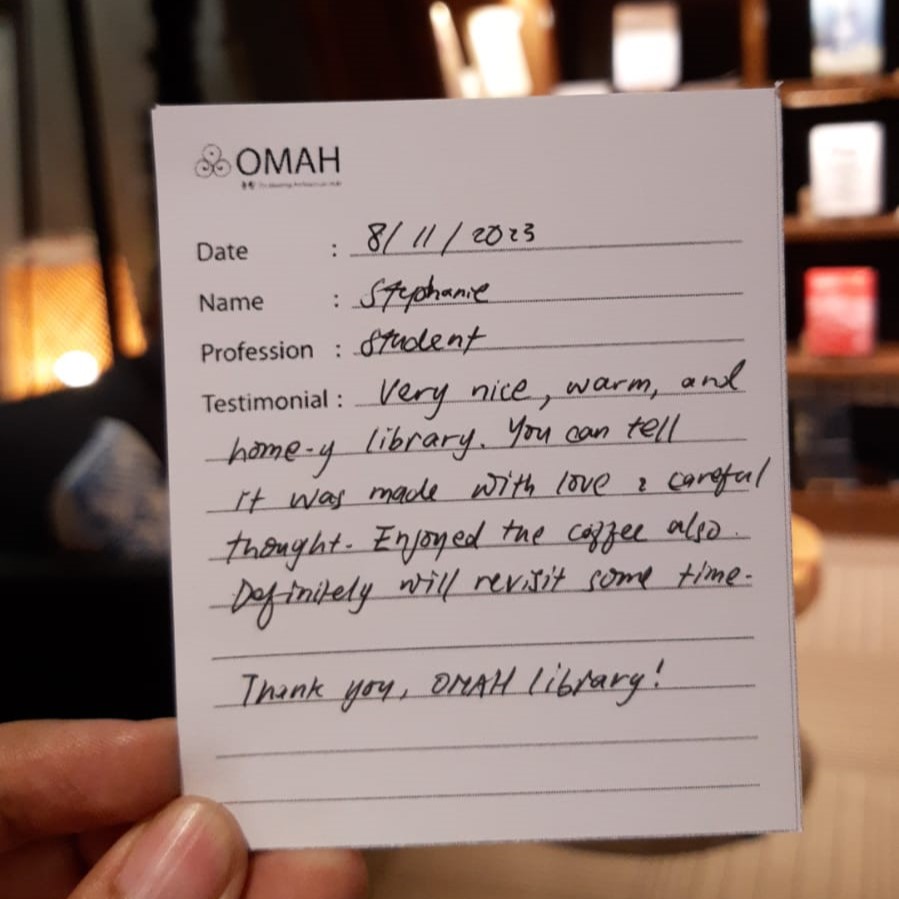 OMAH
Date : 8/11/2023
Name : Stephanie
Profession : Student
Testimonial : Very nice, warm, and
home-y library. You can tell
it was made with love & careful
thought. Enjoyed the coffee also.
Definitely will revisit some time.
Thank you, OMAH library!